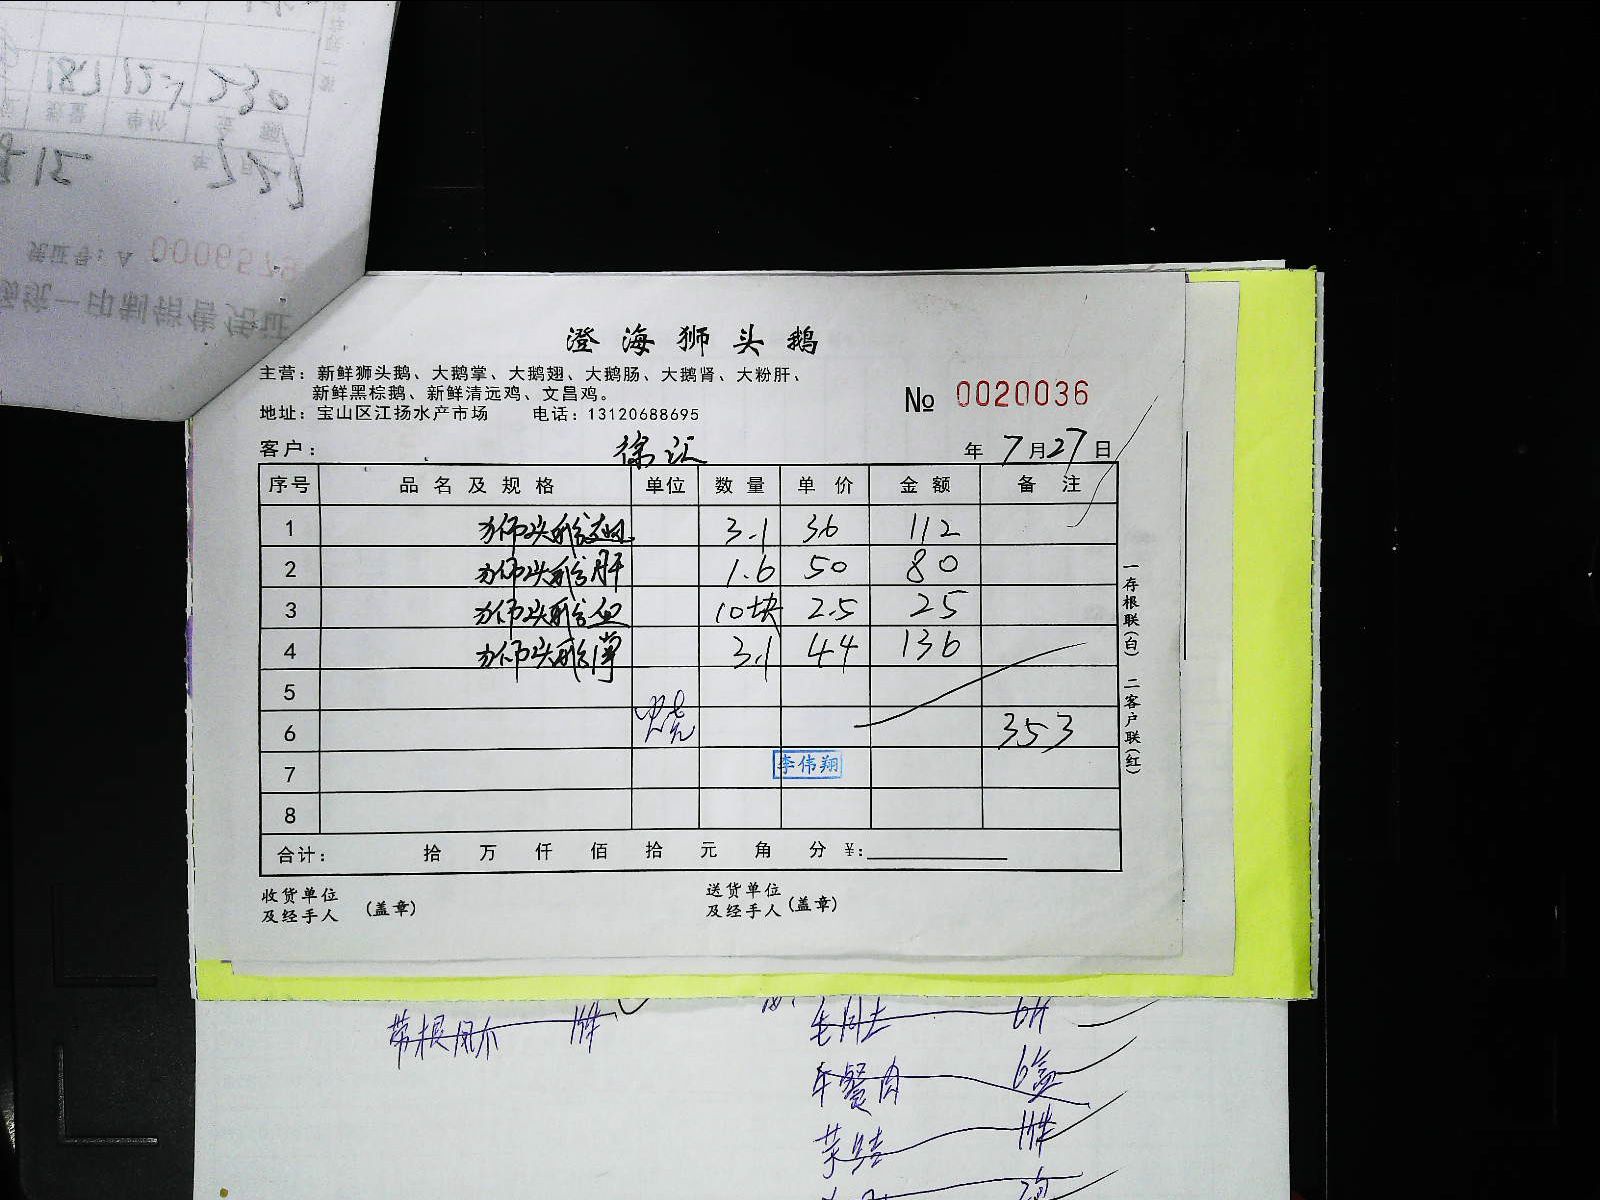 澄海狮头鹅
主营：新鲜狮头鹅、大鹅掌、大鹅翅、大鹅肠、大鹅肾、大粉肝、
新鲜黑棕鹅、新鲜清远鸡、文昌鸡。
地址：宝山区江扬水产市场 电话：13120688695
№ 0020036
客户： 徐汇 年 7月27日
序号 品名及规格 单位 数量 单价 金额 备注
1 狮头鹅翅 3.1 36 112
2 狮头鹅肝 1.6 50 80
3 狮头鹅血 10块 2.5 25
4 狮头鹅掌 3.1 44 136
5
6 353
7 李伟翔
8
合计： 拾 万 仟 佰 拾 元 角 分 ¥:
收货单位及经手人 (盖章) 送货单位及经手人 (盖章)
一存根联(白) 二客户联(红)
凭证号：A 0006579
统一印制销售凭证
数量 单价 金额
230
带根 
毛肚 6H
午餐肉 6盒
菜结